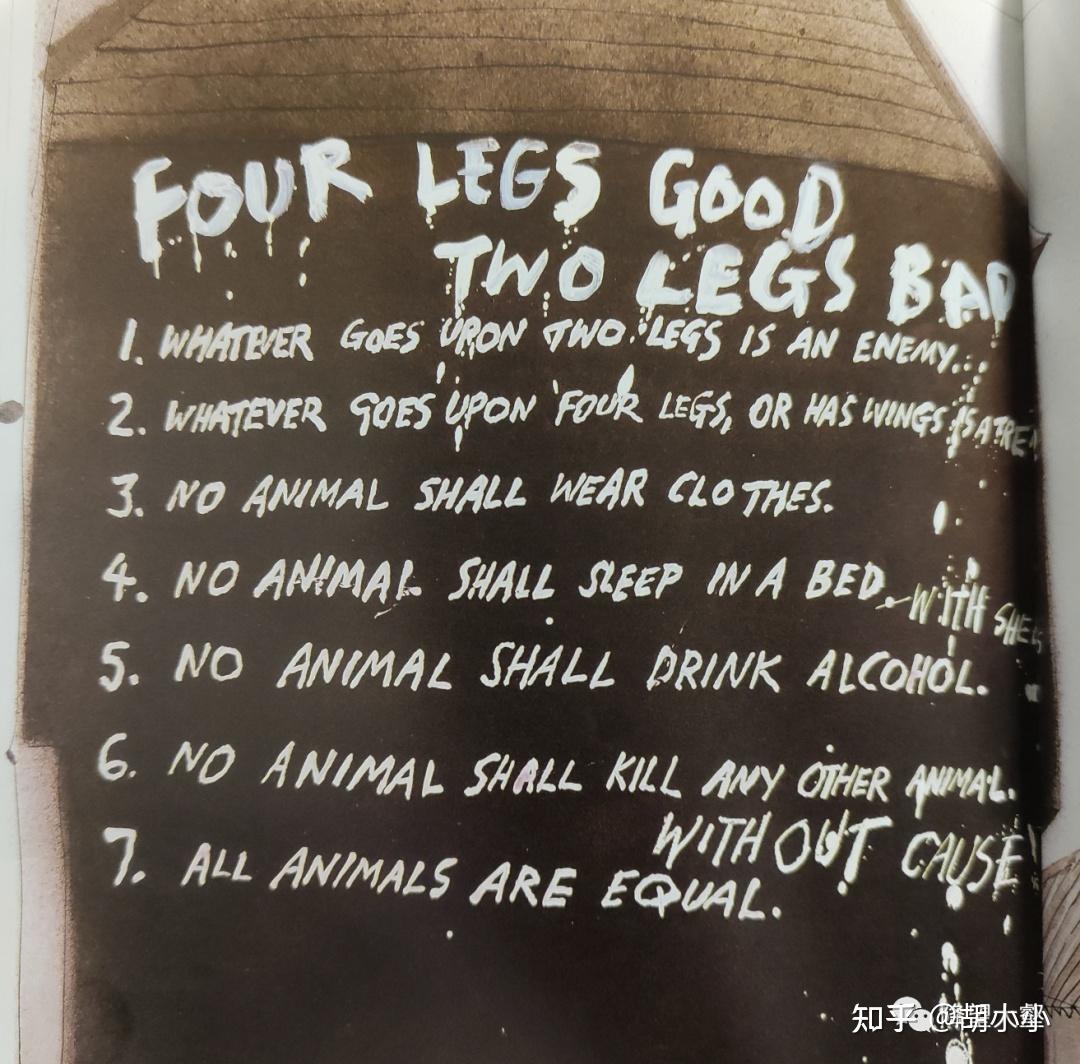 FOUR LEGS GOOD
TWO LEGS BAD
1. WHATEVER GOES UPON TWO LEGS IS AN ENEMY.
2. WHATEVER GOES UPON FOUR LEGS, OR HAS WINGS IS A
3. NO ANIMAL SHALL WEAR CLOTHES.
4. NO ANIMAL SHALL SLEEP IN A BED. WITH
5. NO ANIMAL SHALL DRINK ALCOHOL.
6. NO ANIMAL SHALL KILL ANY OTHER ANIMAL.
WITHOUT CAUSE
7. ALL ANIMALS ARE EQUAL.
知乎 @胡小犟